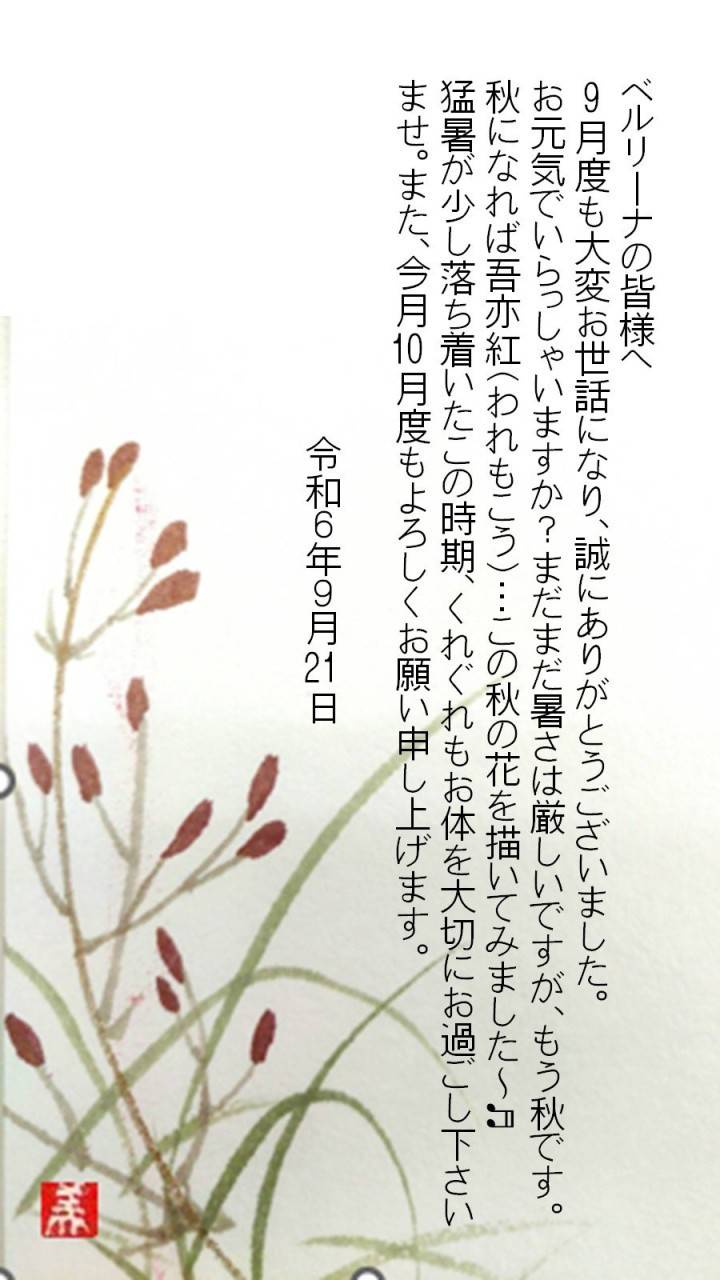 ベルリーナの皆様へ
9月度も大変お世話になり、誠にありがとうございました。
お元気でいらっしゃいますか？まだまだ暑さは厳しいですが、もう秋です。
秋になれば吾亦紅（われもこう）…この秋の花を描いてみました～♫
猛暑が少し落ち着いたこの時期、くれぐれもお体を大切にお過ごし下さい
ませ。また、今月10月度もよろしくお願い申し上げます。
令和6年9月21日